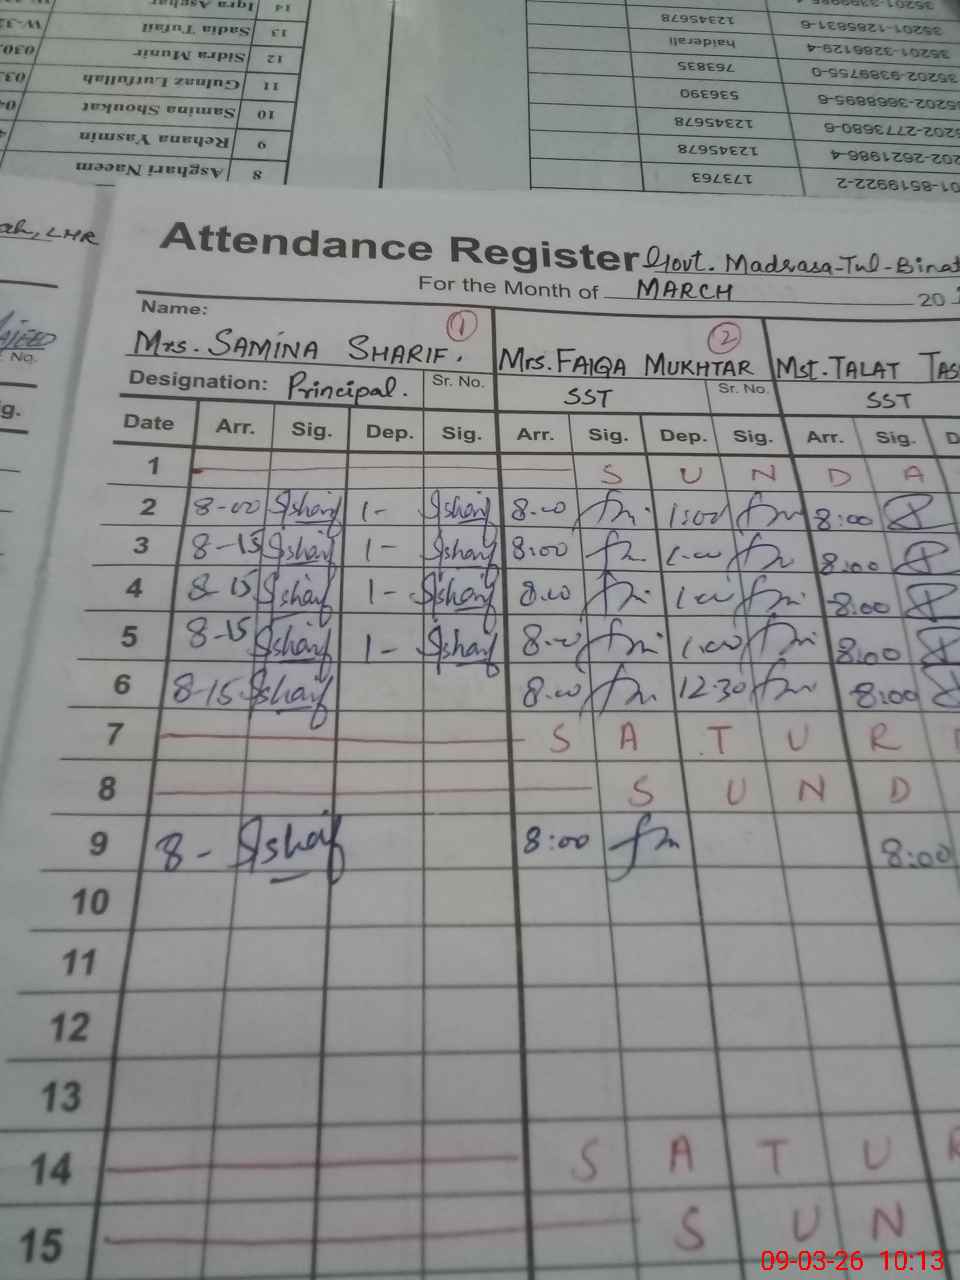 14 Iqra Asghar
13 Sadia Tufail
12 Sidra Munir
11 Gulnaz Lutfullah
10 Samina Shoukat
9 Rehana Yasmin
8 Asghari Naeem
12345678 35201-1285831-6
haiderali 35201-3286129-4
763835 35202-9389755-0
536390 35202-3668895-6
12345678 35202-2773680-6
12345678 202-2621986-4
173763 01-8519922-2
ah, LHR
Attendance Register Govt. Madrasa-Tul-Binat
For the Month of MARCH 20
Name:
Mrs. SAMINA SHARIF. 1 Mrs. FAIQA MUKHTAR 2 Mst. TALAT TAS
Designation: Principal. Sr. No. SST Sr. No. SST
Date Arr. Sig. Dep. Sig. Arr. Sig. Dep. Sig. Arr. Sig. D
1 S U N D A
2 8-00 Ssharif 1- Ssharif 8.00 fm 1:00 fm 8:00
3 8-15 Ssharif 1- Ssharif 8:00 fm 1.00 fm 8:00
4 8-15 Ssharif 1- Ssharif 8.00 fm 1.00 fm 8:00
5 8-15 Ssharif 1- Ssharif 8.00 fm 1.00 fm 8:00
6 8-15 Ssharif 8.00 fm 12.30 fm 8:00
7 S A T U R
8 S U N D
9 8- Ssharif 8:00 fm 8:00
10
11
12
13
14 S A T U R
15 S U N
09-03-26 10:13